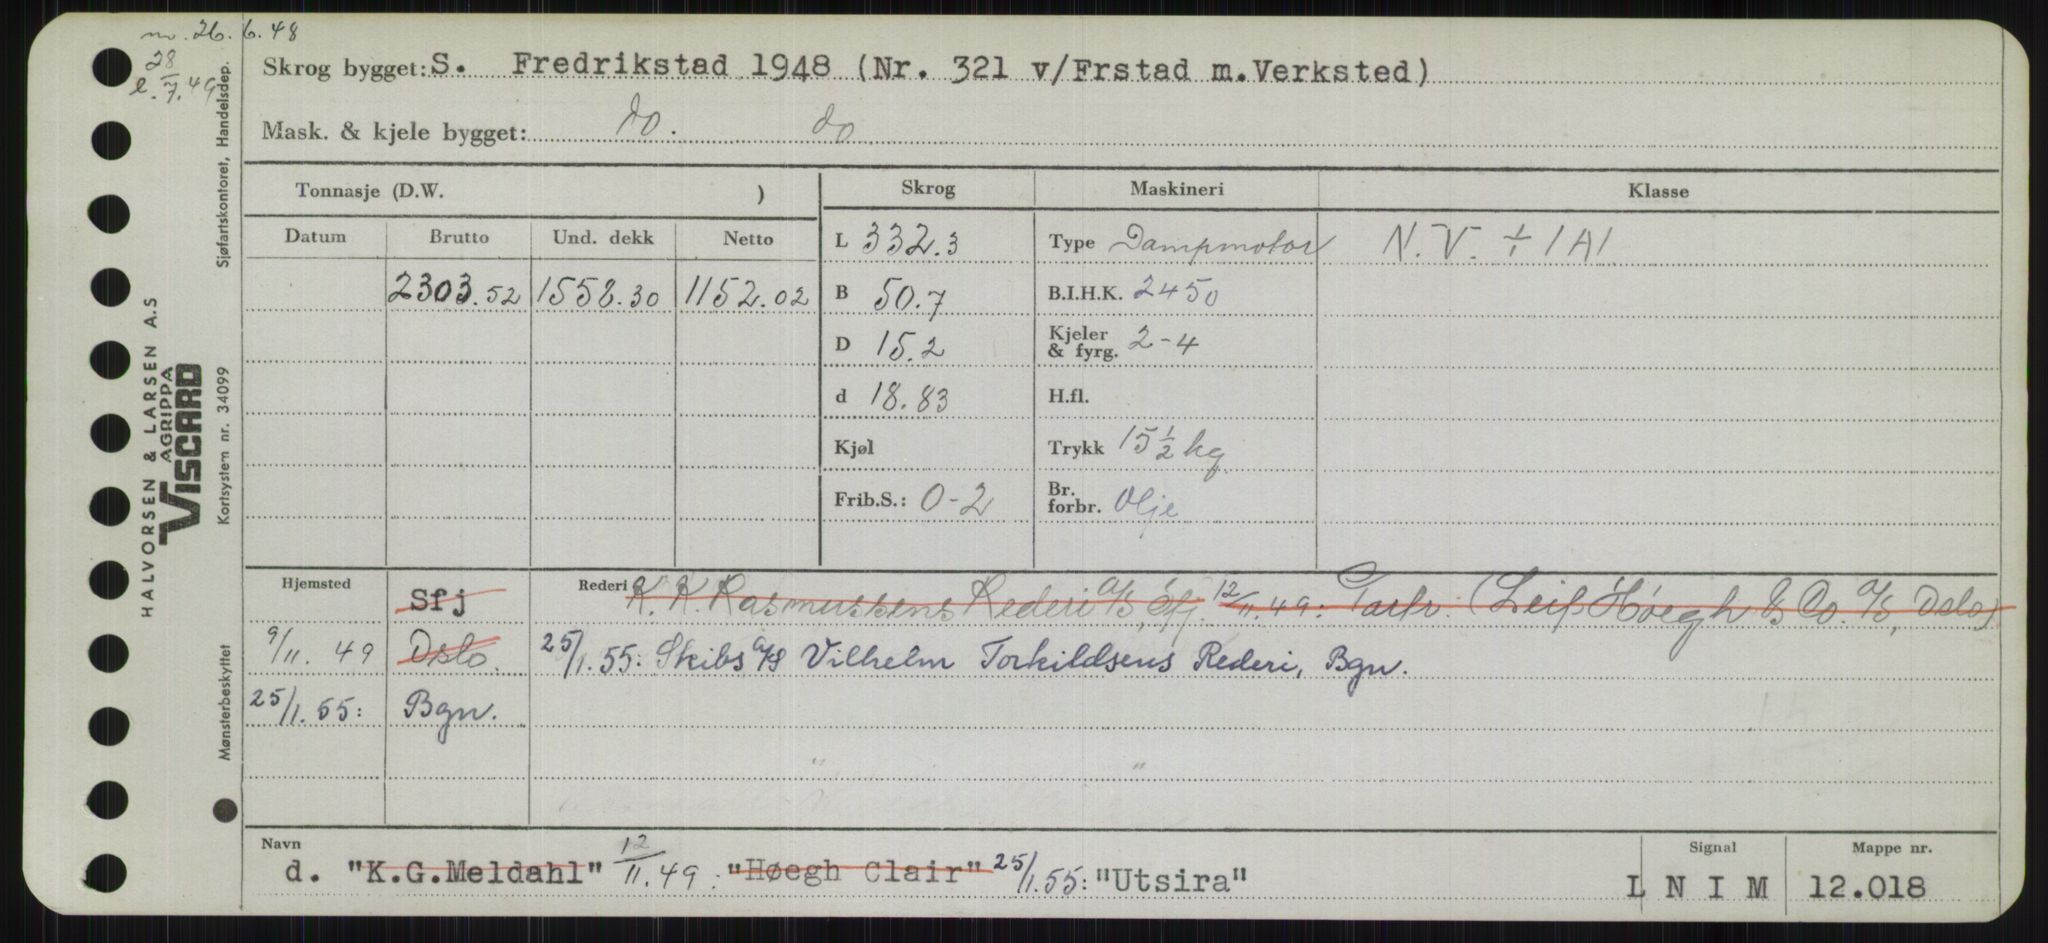 m. 26.6.48
28
e. 7.49
Skrog bygget: S. Fredrikstad 1948 (Nr. 321 v/Frstad m.Verksted)
Mask. & kjele bygget: do. do
Tonnasje (D.W. ) Skrog Maskineri Klasse
Datum Brutto Und. dekk Netto L 332.3 Type Dampmotor N.V. + 1A1
2303.52 1558.30 1152.02 B 50.7 B.I.H.K. 2450
D 15.2 Kjeler & fyrg. 2-4
d 18.83 H.fl.
Kjøl Trykk 15 1/2 kg
Frib.S.: 0-2 Br. forbr. Olje
Hjemsted Sfj Rederi K.K. Rasmussens Rederi A/S, Sfj. 12/11.49: Partr. (Leif Høegh & Co. A/S, Oslo)
9/11.49 Oslo. 25/1.55: Skibs A/S Vilhelm Torkildsens Rederi, Bgn.
25/1.55: Bgn.
" "
Navn Signal Mappe nr.
d. "K.G.Meldahl" 12/11.49: "Høegh Clair" 25/1.55: "Utsira" L N I M 12.018
HALVORSEN & LARSEN A.S
AGRIPPA
VISCARD
Mønsterbeskyttet Kortsystem nr. 34099 Sjøfartskontoret, Handelsdep.